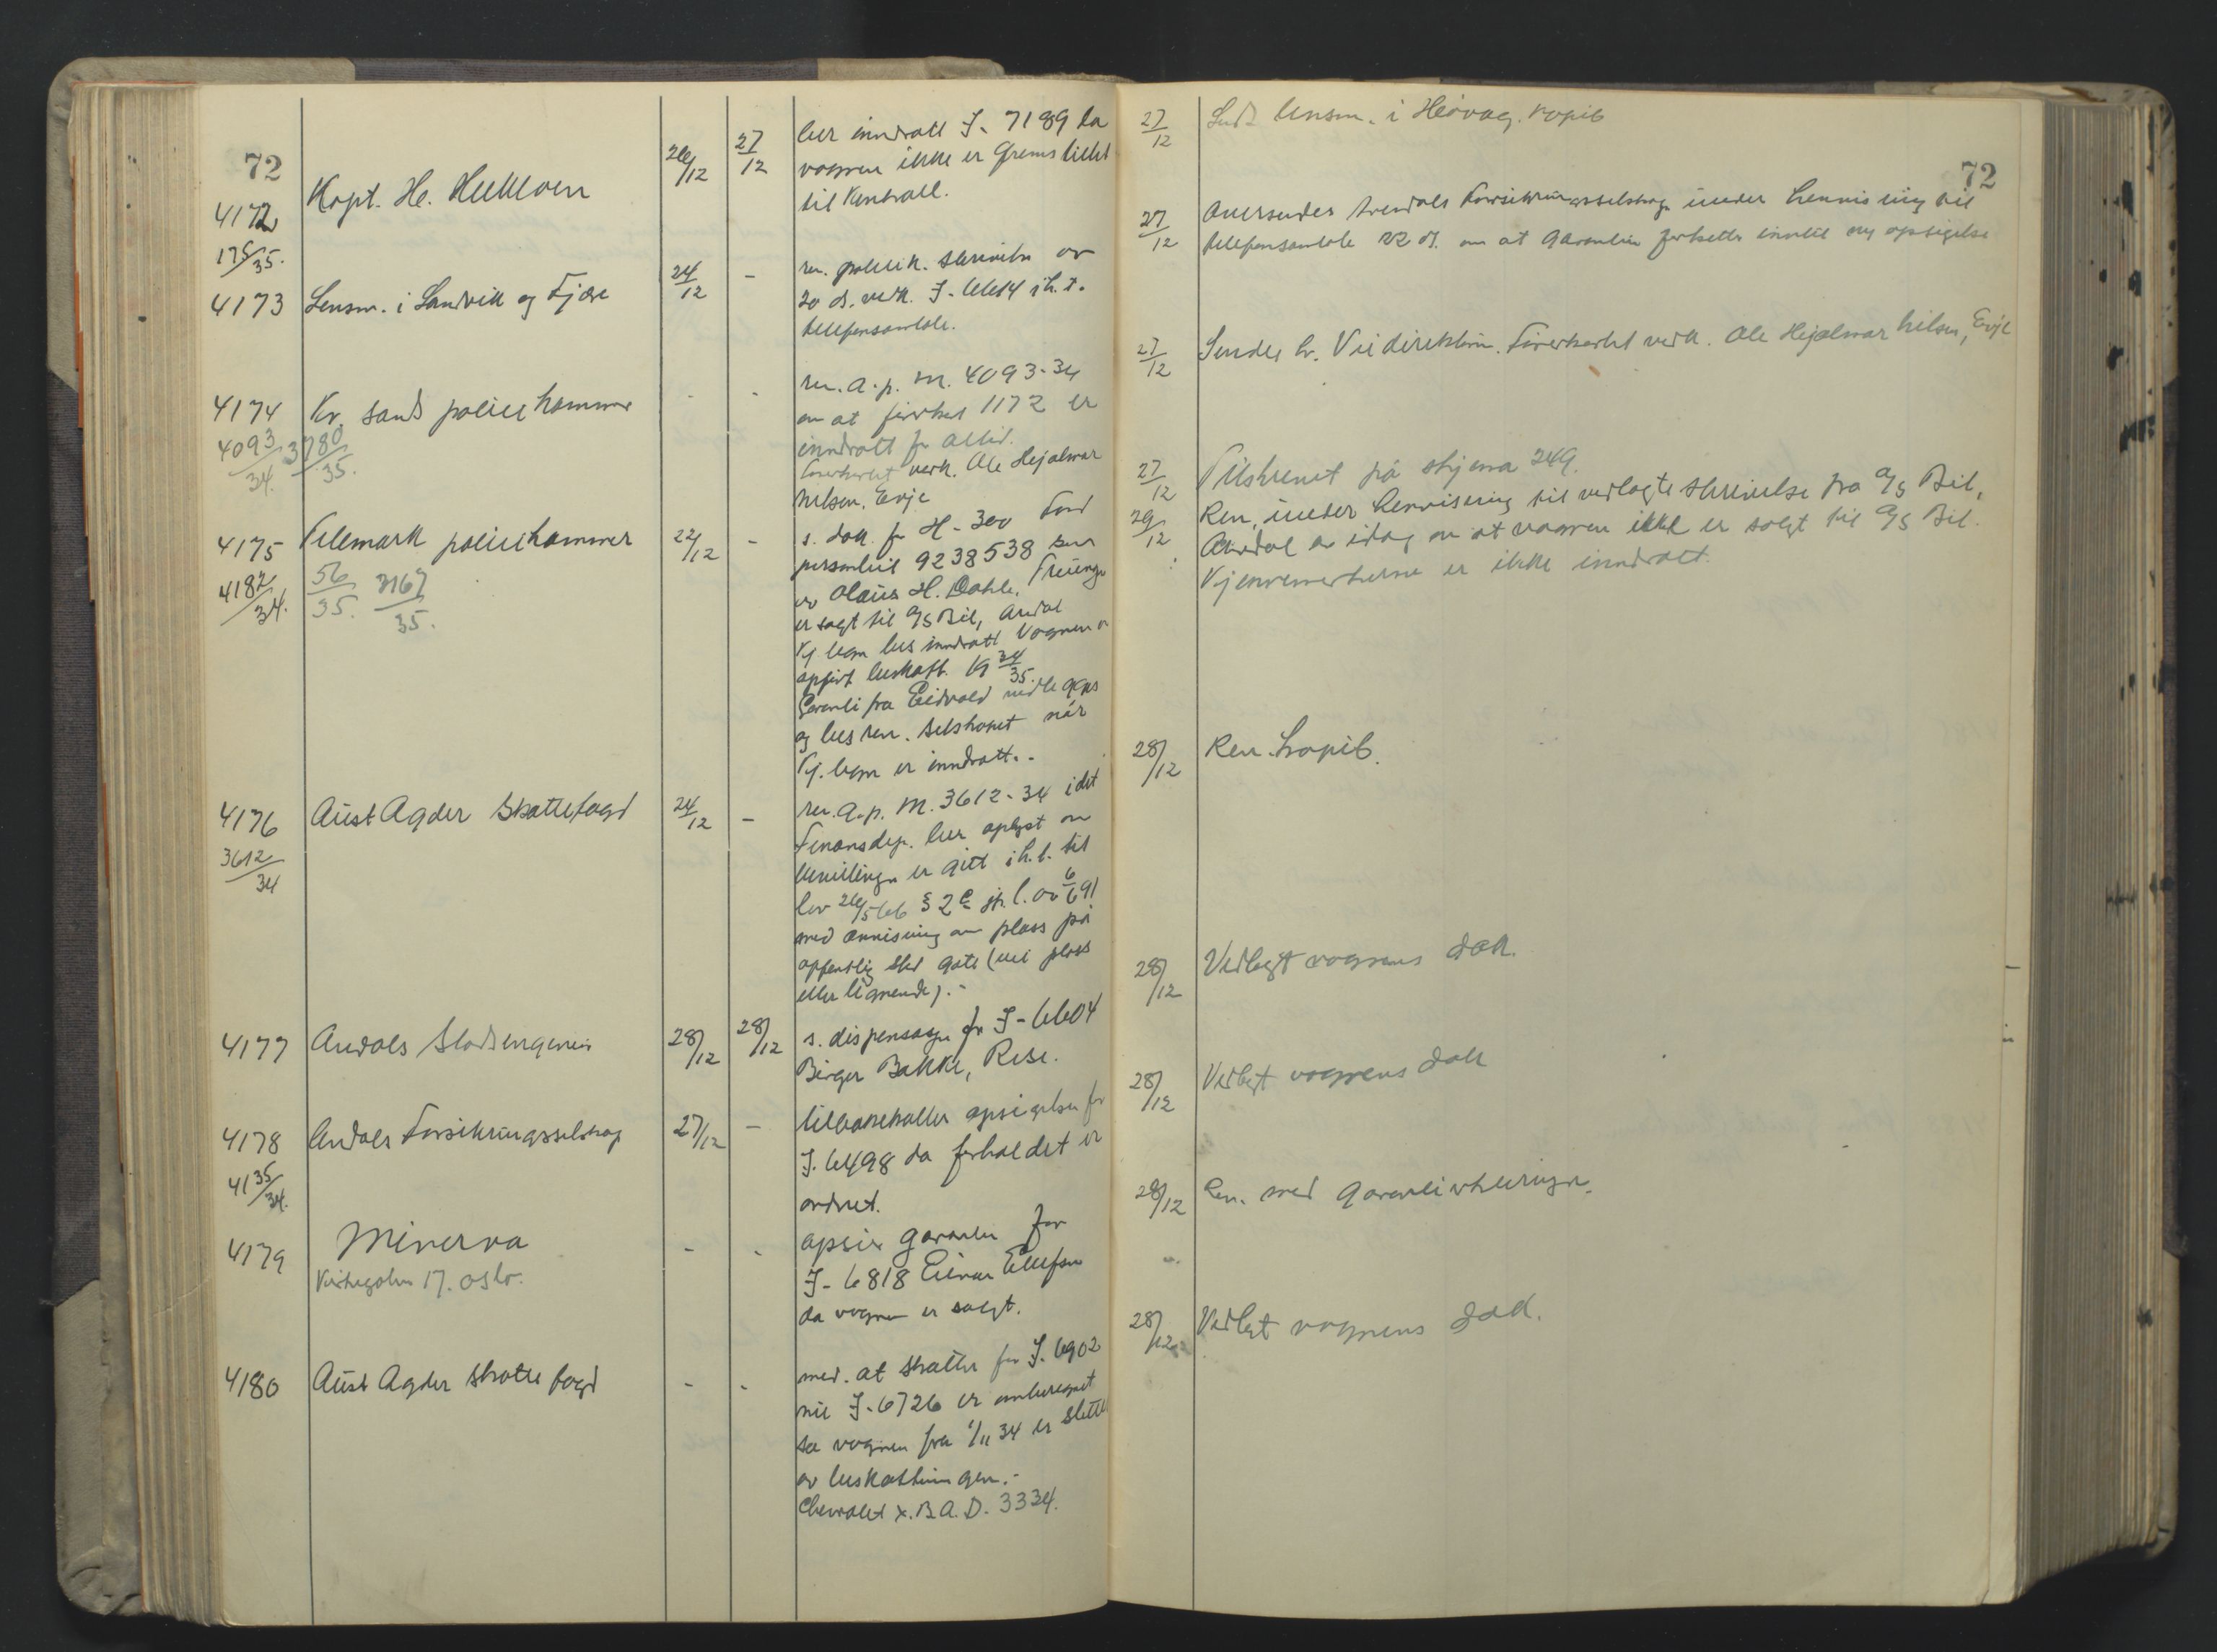 72
4172
175/35.
Kapt. H.
26/12
27/12
ber inndratt I- 7189 da
vognen ikke er fremstillet
til Kontroll.
4173
Lensm. i Landvik og Fjære
24/12
-
ren. politik. skrivelse av
20 ds. vedk. I- 6614 i h. t.
telefonsamtale.
4174
4093/34. 3780/35.
Kr. sands politikammer
-
-
ren. a. p. m. 4093-34
om at førerkort 1172 er
inndratt for alltid.
Førerkortet vedk. Ole Hejalmar
Nilsen, Evje
4175
4182/34. 56/35. 3167/35.
Telemark politikammer
22/12
-
s. dok. for H- 300 Ford
personbil 9238538 som
av Olaus H. Dahle, Treungen
er solgt til A/S Bil, Arendal
Kj. tegn bes inndratt. Vognen er
oppført beskatt. kg 34/35.
Garanti fra Eidsvold vedlegges
og bes ren. selskapet når
Kj. tegn er inndratt. -
4176
3612/34
Aust Agder Skattefogd
24/12
-
ren. a. p. M. 3612-34 idet
Finansdep. ber oplyst om
bevilling er gitt i h. t. til
lov 26/5 66 § 2 e jfr. l. av 6/6 91
med anvisning av plass på
offentlig sted gate (vei plass
eller lignende). -
4177
Arendals Stadsengeniør
28/12
28/12
s. dispensasjon for I- 6604
Birger Bakke, Rise.
4178
4135/34.
Arendals Forsikringsselskap
27/12
-
tilbakekaller opsigelsen for
I. 6498 da forholdet er
ordnet.
4179
Minerva
Kirkegaten 17. Oslo.
-
-
opsier garantien for
I- 6818 Einar Ellefsen
da vognen er solgt.
4180
Aust Agder Skattefogd
-
-
med. at skatten for I. 6902
nu I- 6726 er omberegnet
da vognen fra 1/11 34 er slettet
av beskatningen. -
Chevrolet x. B. A. D. 3334.
72
27/12
Sendt lensm. i Høvåg. kopib
27/12
Oversendes Arendals Forsikringsselskap under henvisning til
telefonsamtale 22 ds. om at garantien fortsetter inntil ny opsigelse
27/12
Sendes hr. Veidirektøren. Førerkortet vedk. Ole Hejalmar Nilsen, Evje
27/12
Tilskrevet på skjema 249.
29/12
Ren. under henvisning til vedlagte skrivelse fra A/S Bil,
Arendal av idag om at vognen ikke er solgt til A/S Bil.
Kjennemerkerne er ikke inndratt.
28/12
Ren. kopib.
28/12
Vedlagt vognens dok.
28/12
Vedlagt vognens dok
28/12
Ren. med garantierklæringen.
-
28/12
Vedlagt vognens dok.